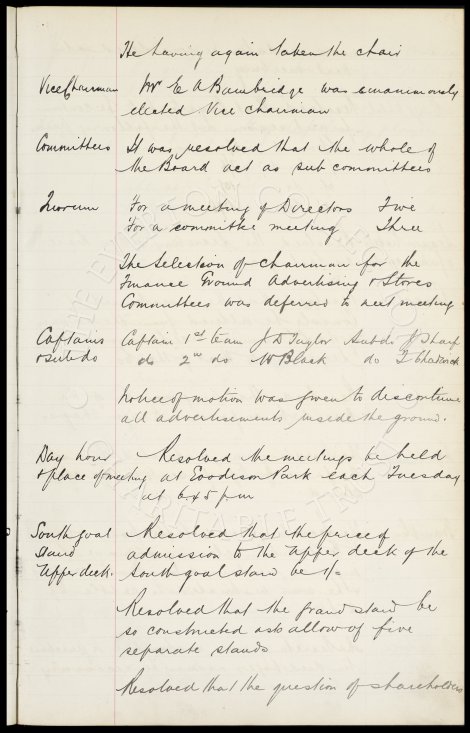 He having again taken the chair
Vice Chairman Mr E A Bainbridge was unanimously
elected Vice Chairman
Committees It was resolved that the whole of
the Board act as sub committees
Quorum For a meeting of Directors Five
For a committee meeting Three
The selection of chairman for the
Finance Ground Advertising & Stores
Committees was deferred to next meeting
Captains Captain 1st team J D Taylor Sub do J Sharp
& sub do do 2nd do W Black do T Chadwick
Notice of motion was given to discontinue
all advertisements inside the ground.
Day hour Resolved the meetings be held
& place of meeting at Goodison Park each Tuesday
at 6.45 pm
South goal Resolved that the price of
stand admission to the upper deck of the
Upper deck. South goal stand be 1/=
Resolved that the grand stand be
so constructed as to allow of five
separate stands
Resolved that the question of shareholders